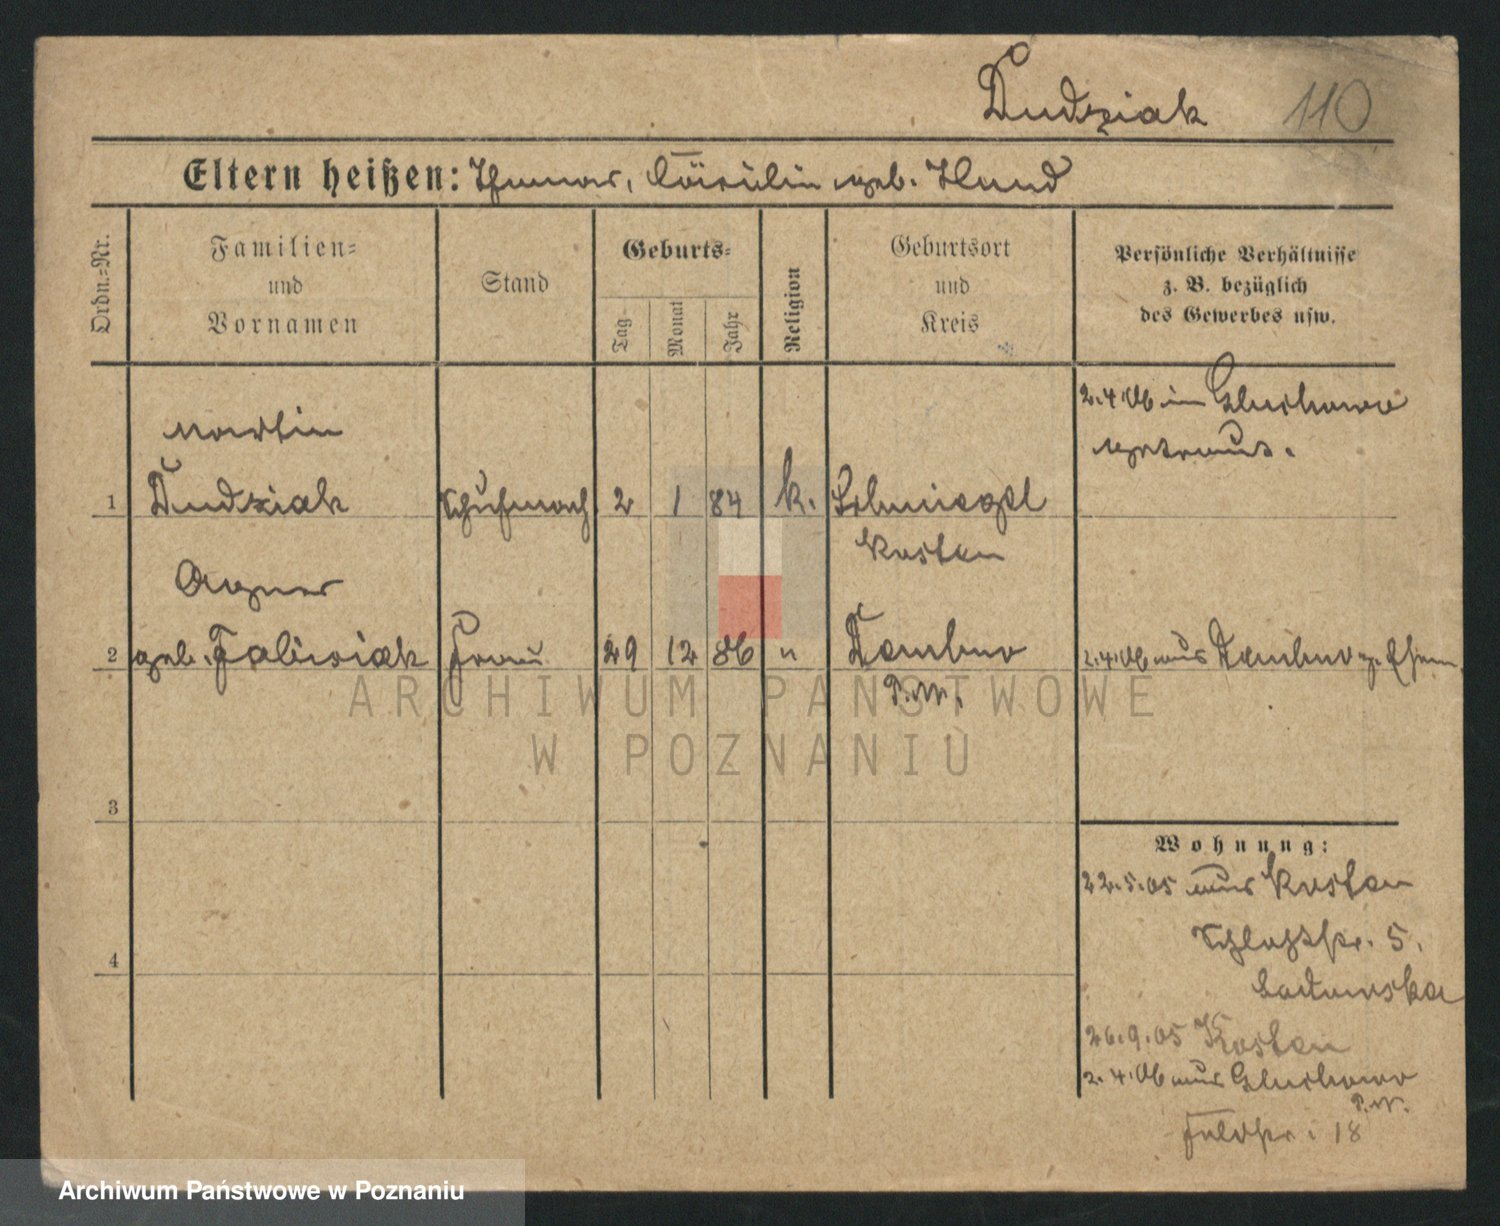 Dudziak 110
Eltern heißen: Thomas, geb. Hund
Ordn.=Nr.
Familien=
und
Vornamen
Stand
Geburts=
Tag
Monat
Jahr
Religion
Geburtsort
und
Kreis
Persönliche Verhältnisse
z. B. bezüglich
des Gewerbes usw.
2.4.06 in Gluchowo
getraut.
Martin
1 Dudziak Schuhmach 2 1 84 k. Schmiegel
Kosten
Agnes
2 geb. Frau 29 12 86 " Dembno
P.W.
2.4.06 aus Dembno z. Ehem
3
4
Wohnung:
22.5.05 aus Kosten
Schloßstr. 5.
26.9.05 Kosten
2.4.06 aus Gluchowo
P.W.
Feldstr. 18
ARCHIWUM PAŃSTWOWE
W POZNANIU
Archiwum Państwowe w Poznaniu